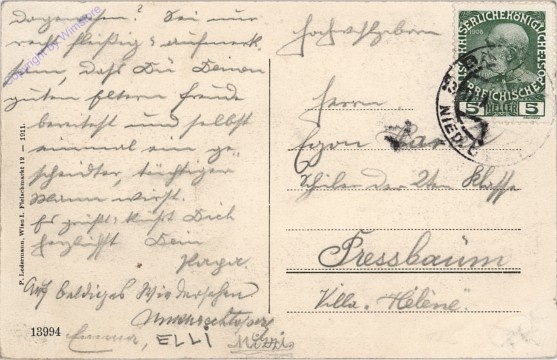 dagewesen? Sei nur
recht fleißig & aufmerk
sam, daß Du Deinen
guten Eltern Freude
bereitest und selbst
einmal ein ge-
scheidter, tüchtiger
Mann wirst.
Es grüßt & küßt Dich
herzlichst Dein
Papa.
Auf baldiges Wiedersehen
Emma, ELLI Mizzi
13994
P. Ledermann, Wien I. Fleischmarkt 12 — 1911.
Copyright by Wimetore
Hochwohlgeboren
Herrn
Egon
Schüler der 2ten Klasse
Pressbaum
Villa "Helene"
KAISERLICHE KÖNIGLICHE
ÖSTERREICHISCHE POST
1908
5 HELLER 5
WIEN